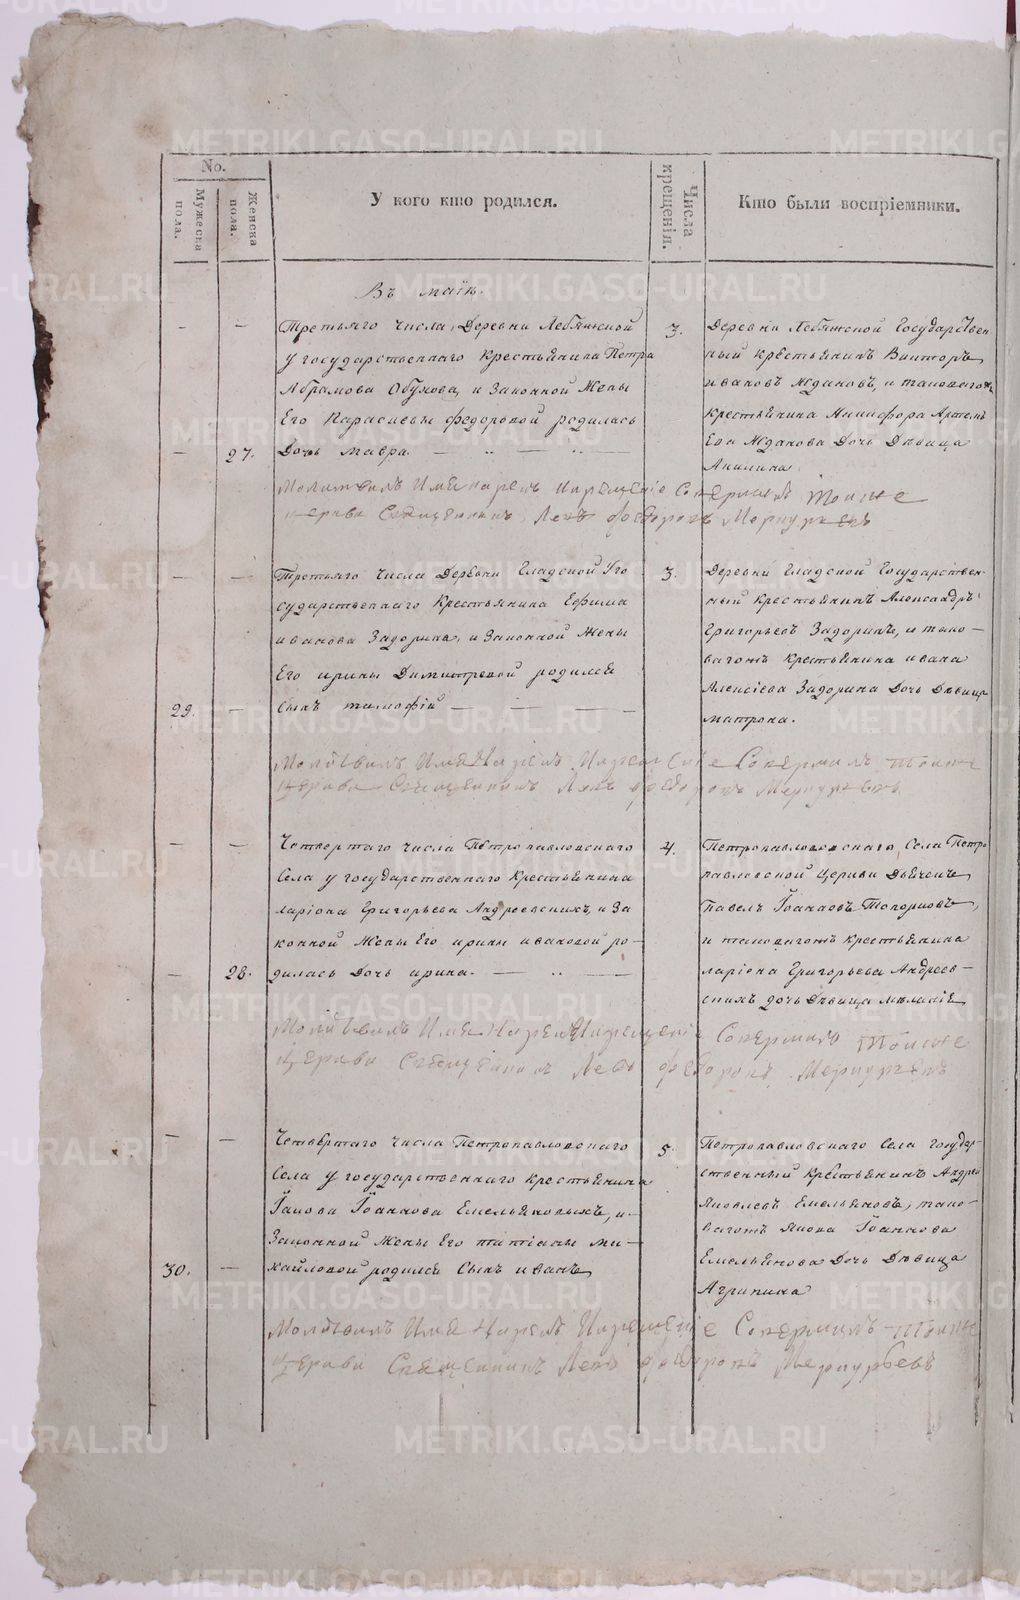 No.
Мужеска пола.
Женска пола.
У кого кто родился.
Числа крещенія.
Кто были воспріемники.
Въ маіѣ.
Третьяго числа, Деревни Лебяжской
у государственнаго крестьянина Петра
Абрамова Обухова, и Законной Жены
Его Параскевы федоровой родилась
27. Дочь Мавра.
3.
Деревни Лебяжской Государствен-
ный крестьянинъ Викторъ
ивановъ Ждановъ, и таковагожъ
крестьянина Никифора Артемь
Ева Жданова Дочь Дѣвица
Акилина
Молитвилъ Имя нарекъ и крещеніе Совершилъ Тоиже
церкви Священникъ Левъ федоровъ Меркурьевъ
Третьяго числа Деревни Гладской Уго
сударственнаго Крестьянина Ефима
иванова Задорина, и Законной Жены
Его ирины Димитревой родился
29. Сынъ тимофій
3.
Деревни Гладской Государствен-
ный крестьянинъ Александръ
Григорьевъ Задоринъ, и тако-
вагожъ крестьянина ивана
Алексіева Задорина Дочь Дѣвица
матрона.
Молитвилъ Имя Нарекъ Икрещеніе Совершилъ тоиже
Церкви Священникъ Левъ федоровъ Меркурьевъ
Четвертаго числа Петропавловскаго
Села у государственнаго Крестьянина
ларіона Григорьева Андреевскихъ, и За
конной Жены Его ирины ивановой ро-
28. дилась Дочь ирина.
4.
Петропавловскаго Села Петро
павловской Церкви Дьячекъ
Павелъ Іоанновъ Топорковъ,
и таковагожъ крестьянина
ларіона Григорьева Андреев-
скихъ дочь Дѣвица Мѣланія
Молитвилъ Имя Нарекъ Икрещеніе Совершилъ Тоиже
Церкви Священникъ Левъ федоровъ Меркурьевъ
Четвертаго числа Петропавловскаго
Села у государственнаго крестьянина
Іакова Іоаннова Емельяновыхъ, и
Законной Жены Его татіаны ми-
30. хайловой родился Сынъ иванъ
5.
Петропавловскаго Села Государ-
ственный Крестьянинъ Андрей
Яковлевъ Емельяновъ, тако-
вагожъ Якова Іоаннова
Емельянова Дочь Дѣвица
Агрипина
Молитвилъ Имя Нарекъ Икрещеніе Совершилъ тоиже
Церкви Священникъ Левъ федоровъ Меркурьевъ
METRIKI.GASO-URAL.RU